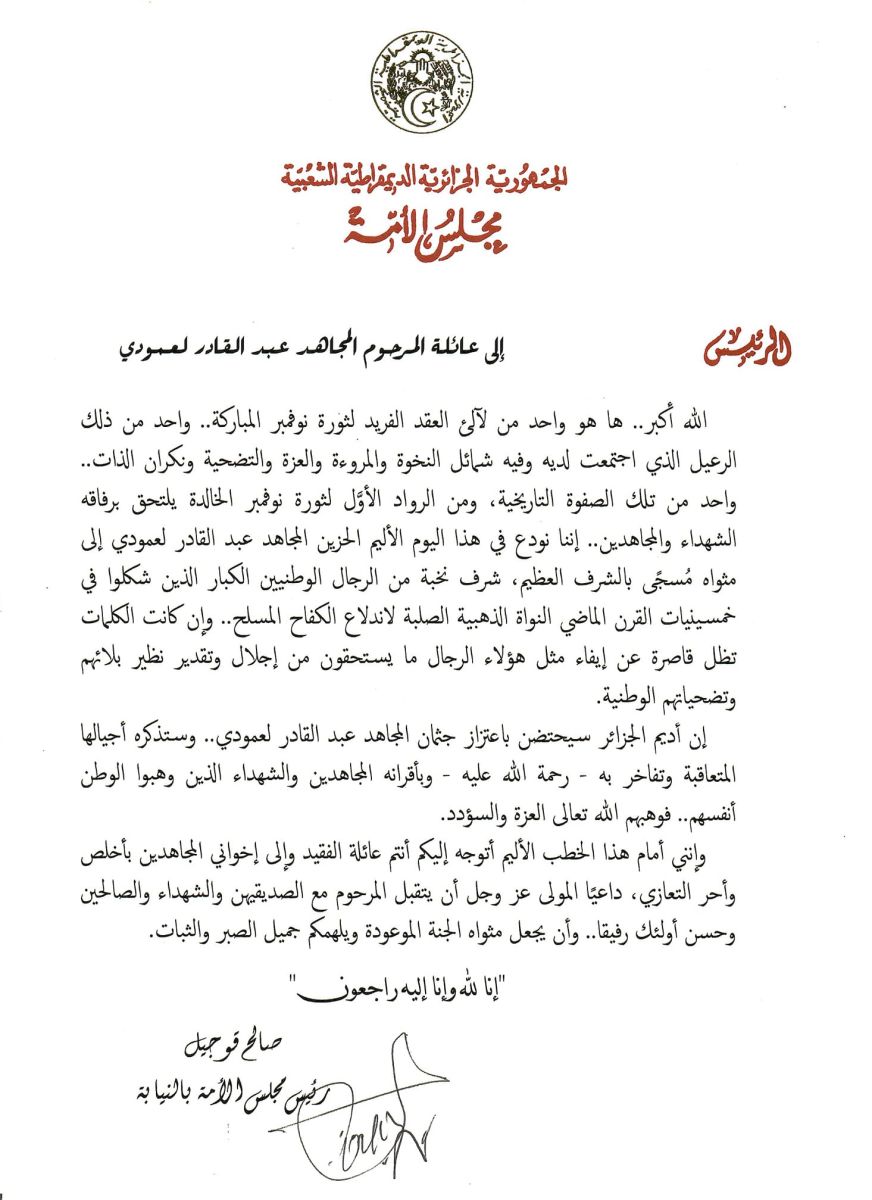 الجمهورية الجزائرية الديمقراطية الشعبية
الجُمْهُوريّة الجزائريّة الديمقراطيّة الشعْبيّة
مجْلسُ الأمّة
الرئيس
إلى عائلة المرحوم المجاهد عبد القادر لعمودي
الله أكبر.. ها هو واحد من لآلئ العقد الفريد لثورة نوفمبر المباركة.. واحد من ذلك
الرعيل الذي اجتمعت لديه وفيه شمائل النخوة والمروءة والعزة والتضحية ونكران الذات..
واحد من تلك الصفوة التاريخية، ومن الرواد الأوَّل لثورة نوفمبر الخالدة يلتحق برفاقه
الشهداء والمجاهدين.. إننا نودع في هذا اليوم الأليم الحزين المجاهد عبد القادر لعمودي إلى
مثواه مُسجًى بالشرف العظيم، شرف نخبة من الرجال الوطنيين الكبار الذين شكلوا في
خمسينيات القرن الماضي النواة الذهبية الصلبة لاندلاع الكفاح المسلح.. وإن كانت الكلمات
تظل قاصرة عن إيفاء مثل هؤلاء الرجال ما يستحقون من إجلال وتقدير نظير بلائهم
وتضحياتهم الوطنية.
إن أديم الجزائر سيحتضن باعتزاز جثمان المجاهد عبد القادر لعمودي.. وستذكره أجيالها
المتعاقبة وتفاخر به - رحمة الله عليه - وبأقرانه المجاهدين والشهداء الذين وهبوا الوطن
أنفسهم.. فوهبهم الله تعالى العزة والسؤدد.
وإنني أمام هذا الخطب الأليم أتوجه إليكم أنتم عائلة الفقيد وإلى إخواني المجاهدين بأخلص
وأحر التعازي، داعيًا المولى عز وجل أن يتقبل المرحوم مع الصديقيهن والشهداء والصالحين
وحسن أولئك رفيقا.. وأن يجعل مثواه الجنة الموعودة ويلهمكم جميل الصبر والثبات.
"إنا لله وإنا إليه راجعون"
صالح قوجيل
رئيس مجلس الأمة بالنيابة